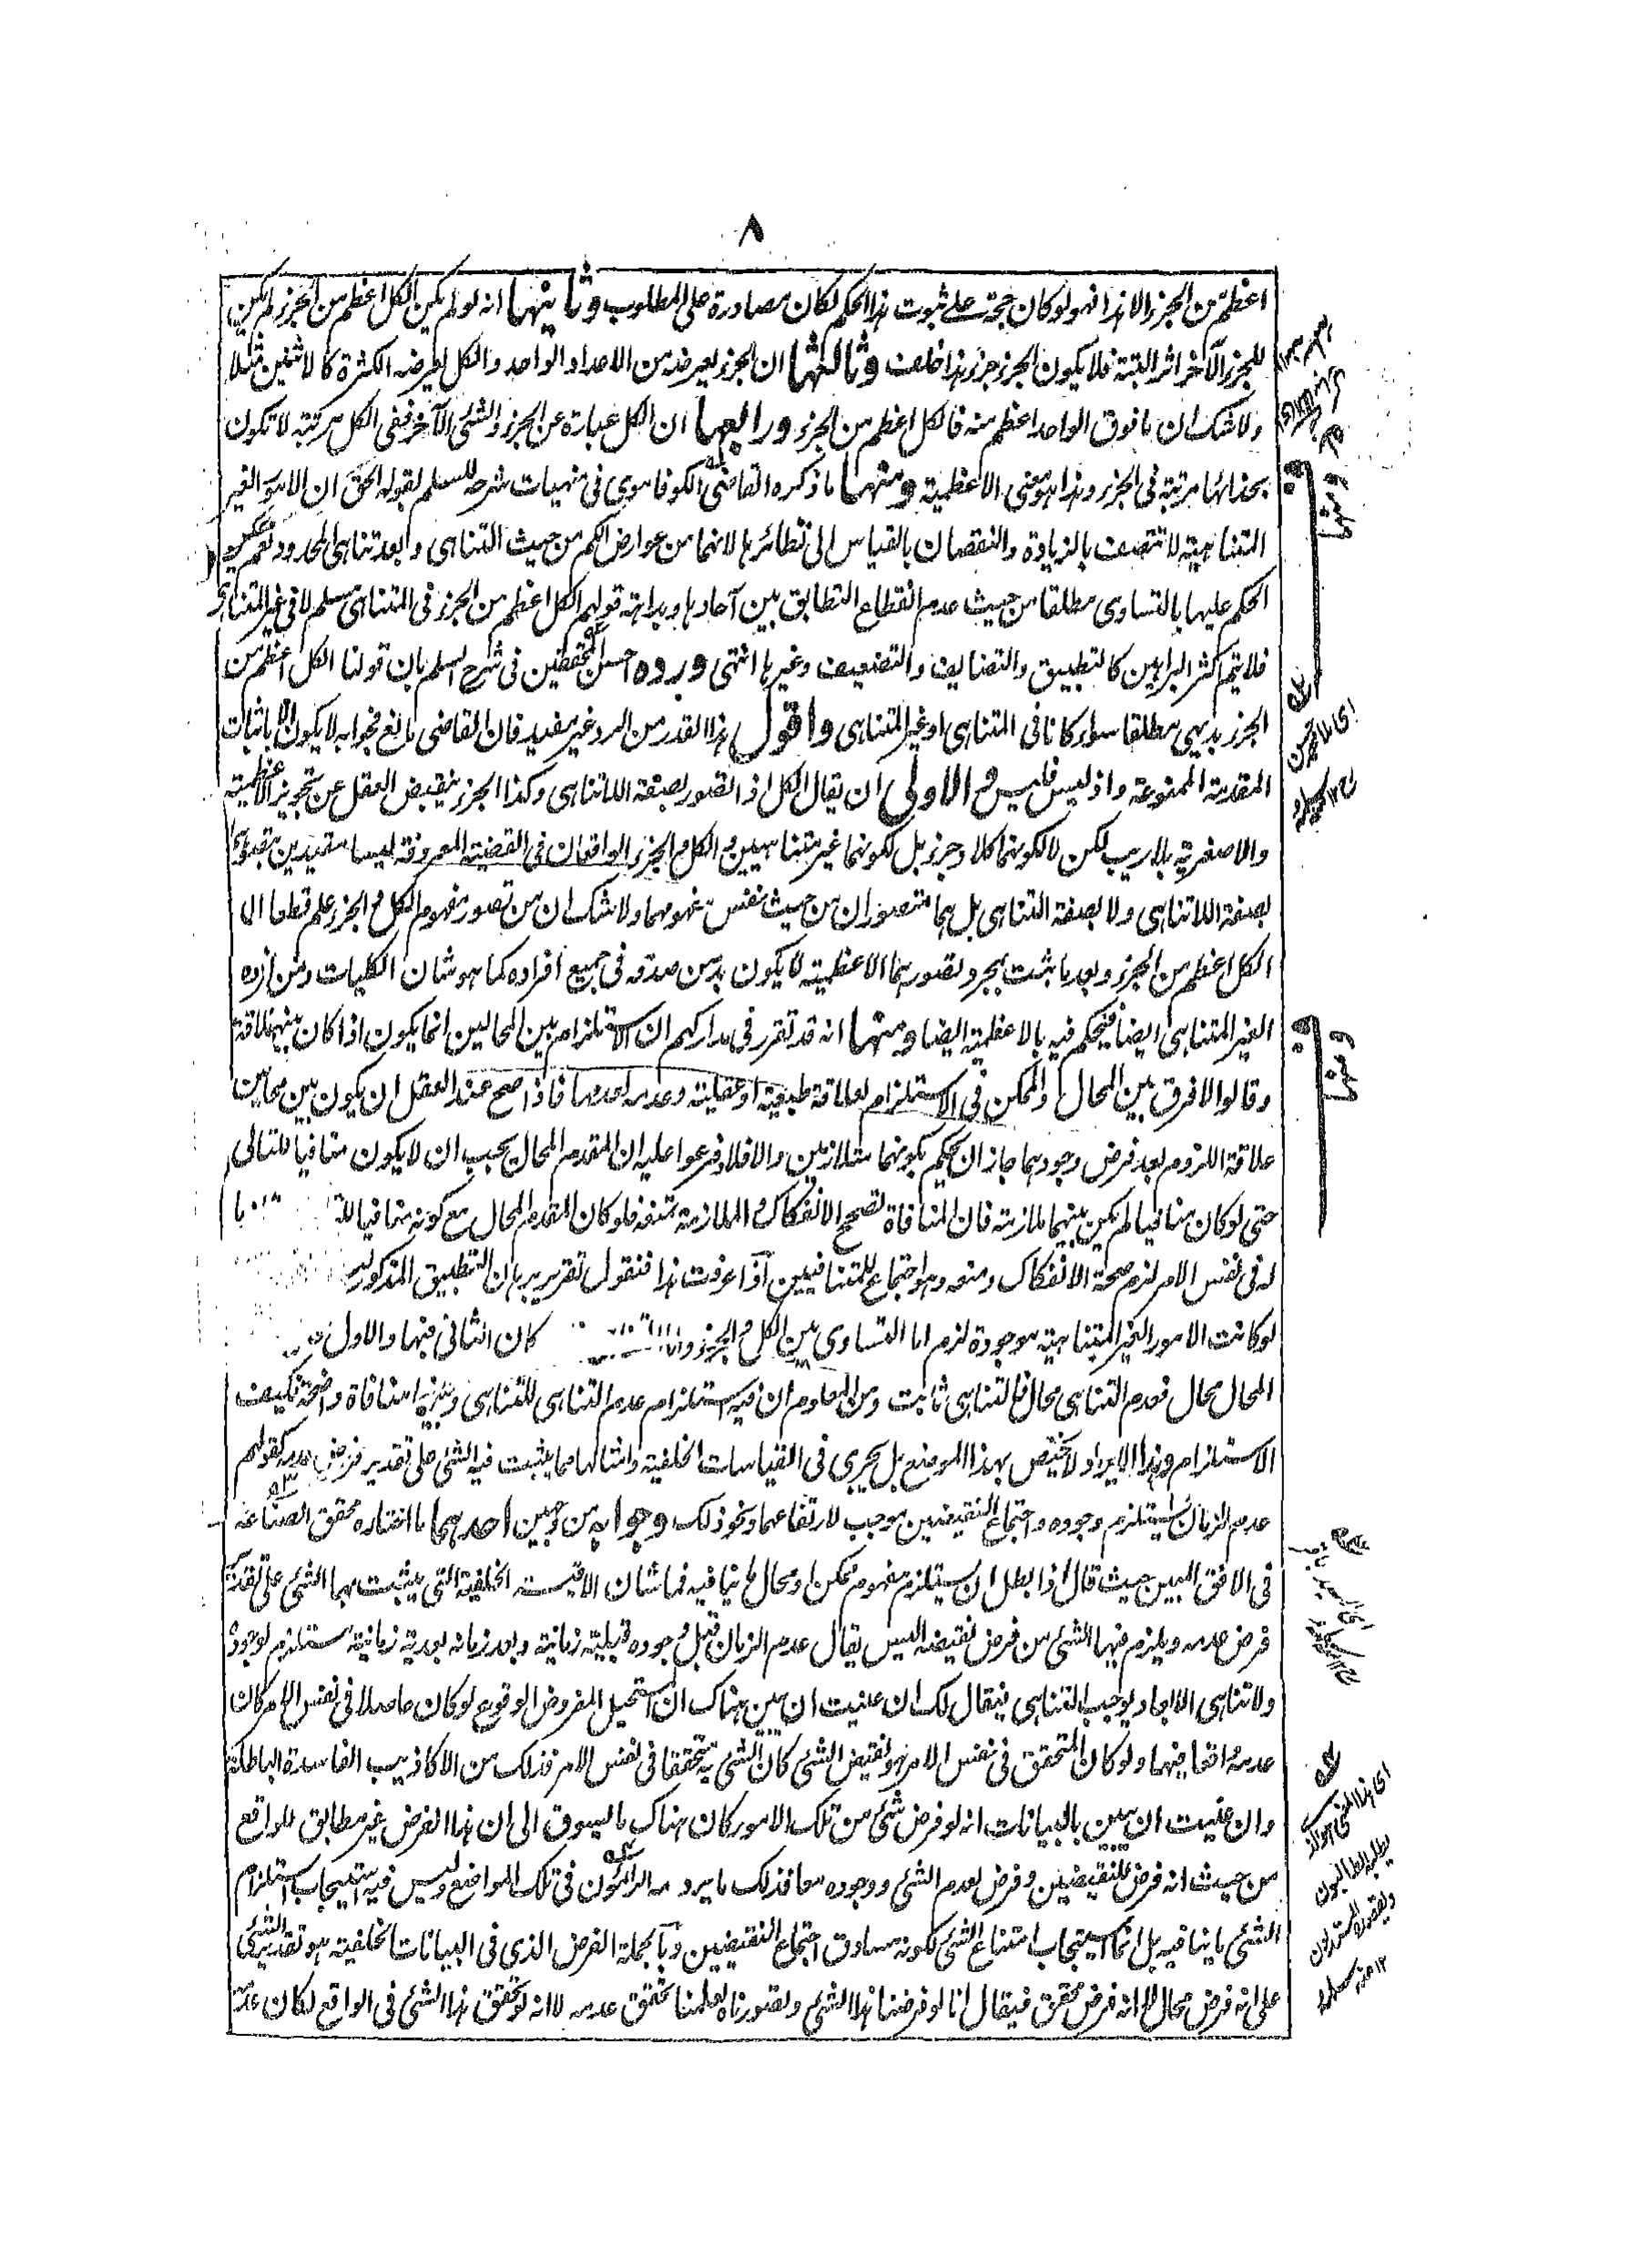 ٨
اعظم من الجزء الا هذا فهو لو كان حجة على ثبوت هذا الحكم لكان مصادرة على المطلوب وثانيها انه لو لم يكن الكل اعظم من الجزء لم يكن
للجزء الآخر اثر البتة فلا يكون الجزء جزء هذا خلف وثالثها ان الجزء يعرضه من الاعداد الواحد والكل يعرضه الكثرة كالاثنين مثلا
ولا شك ان ما فوق الواحد اعظم منه فالكل اعظم من الجزء ورابعها ان الكل عبارة عن الجزء والشئ الآخر ففى الكل مرتبة لا تكون
بحذائها مرتبة فى الجزء وهذا هو معنى الاعظمية ومنها ما ذكره القاضى الكوفاموى فى منهيات شرحه للسلم لقوله الحق ان الامور الغير
المتناهية لا تتصف بالزيادة والنقصان بالقياس الى نظائرها لانهما من عوارض الكم من حيث التناهى وابعد تناهى المحدود نعم يمكن
الحكم عليها بالتساوى مطلقا من حيث عدم انقطاع التطابق بين آحادها وبداهة قولهم الكل اعظم من الجزء فى المتناهى مسلم لا فى غير المتناهى
فلا يتم اكثر البراهين كالتطبيق والتضايف والتضعيف وغيرها انتهى ورده احسن المحققين فى شرح السلم بان قولنا الكل اعظم من
الجزء بديهى مطلقا سواء كانا فى المتناهى او غير المتناهى واقول هذا القدر من الرد غير مفيد فان القاضى مانع فجوابه لا يكون الا باثبات
المقدمة الممنوعة واذ ليس فليس والاولى ان يقال الكل اذا تصور بصفة اللاتناهى وكذا الجزء ينقبض العقل عن تجويز الاعظمية
والاصغرية بلا ريب لكن لا لكونهما كلا وجزء بل لكونهما غير متناهيين والكل والجزء الواقعان فى القضية المعروفة ليسا مقيدين
بصفة اللاتناهى ولا بصفة التناهى بل هما متصوران من حيث نفس مفهومهما ولا شك ان من تصور مفهوم الكل والجزء علم قطعا ان
الكل اعظم من الجزء وبعد ما ثبت بمجرد تصورهما الاعظمية لا يكون بد من صدقه فى جميع افراده كما هو شان الكليات ومن افراده
الغير المتناهى ايضا فيحكم فيه بالاعظمية ايضا ومنها انه قد تقرر فى مداركهم ان الاستلزام بين المحالين انما يكون اذا كان بينهما علاقة
وقالوا لا فرق بين المحال والممكن فى الاستلزام لعلاقة طبيعية او عقلية وعدمه لعدمها فاذا صح عند العقل ان يكون بين محالين
علاقة اللزوم بعد فرض وجودهما جاز ان يحكم بكونهما متلازمين والا فلا وفرعوا عليه ان المقدم المحال يجب ان لا يكون منافيا للتالى
حتى لو كان منافيا لم يكن بينهما ملازمة فان المنافاة تصحح الانفكاك والملازمة تمنعه فلو كان المقدم المحال مع كونه منافيا
له فى نفس الامر لزم صحة الانفكاك ومنعه وهو اجتماع للمتنافيين اذا عرفت هذا فنقول تقرير برهان التطبيق المذكور
لو كانت الامور الغير المتناهية موجودة لزم اما التساوى بين الكل والجزء كان الثانى منها والاول
المحال محال فعدم التناهى محال فالتناهى ثابت ومن المعلوم ان فيه استلزام عدم التناهى للتناهى وبينهما منافاة واضحة فكيف
الاستلزام وهذا الايراد لا يختص بهذا الموضع بل يجرى فى القياسات الخلفية وامثالها مما يثبت فيه الشئ على تقدير فرض عدمه كقولهم
عدم الزمان يستلزم وجوده واجتماع النقيضين موجب لارتفاعهما ونحو ذلك وجوابه من وجهين احدهما ما اختاره محقق الصناعة
فى الافق المبين حيث قال اذا بطل ان يستلزم مفهوم ممكن او محال ما ينافيه فما شان الاقيسة الخلفية التى يثبت بها الشئ على تقدير
فرض عدمه ويلزم فيها الشئ من فرض نقيضه اليس يقال عدم الزمان قبل وجوده قبلية زمانية وبعد زمانه بعدية زمانية مستلزم لوجوده
ولا تناهى الابعاد يوجب التناهى فيقال لك ان عنيت ان يبين هناك ان المستحيل المفروض الوقوع لو كان حاصلا فى نفس الامر كان
عدمه واقعا فيها ولو كان المتحقق فى نفس الامر هو نقيض الشئ كان الشئ متحققا فى نفس الامر فذلك من الاكاذيب الفاسدة الباطلة
وان عنيت ان يبين بالبيانات انه لو فرض شئ من تلك الامور كان هناك ما يسوق الى ان هذا الفرض غير مطابق للواقع
من حيث انه فرض للنقيضين وفرض لعدم الشئ ووجوده معا فذلك ما يرومه الرائمون فى تلك المواضع وليس فيه استيجاب استلزام
الشئ ما ينافيه بل انما استيجاب امتناع الشئ لكونه مساوق اجتماع النقيضين وبالجملة الفرض الذى فى البيانات الخلفية هو تقديرى الشئ
على انه فرض محال لا انه فرض محقق فيقال انا لو فرضنا هذا الشئ وتصورناه لعلمنا تحقق عدمه لا انه لو تحقق هذا الشئ فى الواقع لكان عدمه
ومنها
اى ملا محمد حسن
ومنها
اى هذا المعنى هو الذى
يطلبه الطالبون
ويقصده المستدلون
١٢ منه